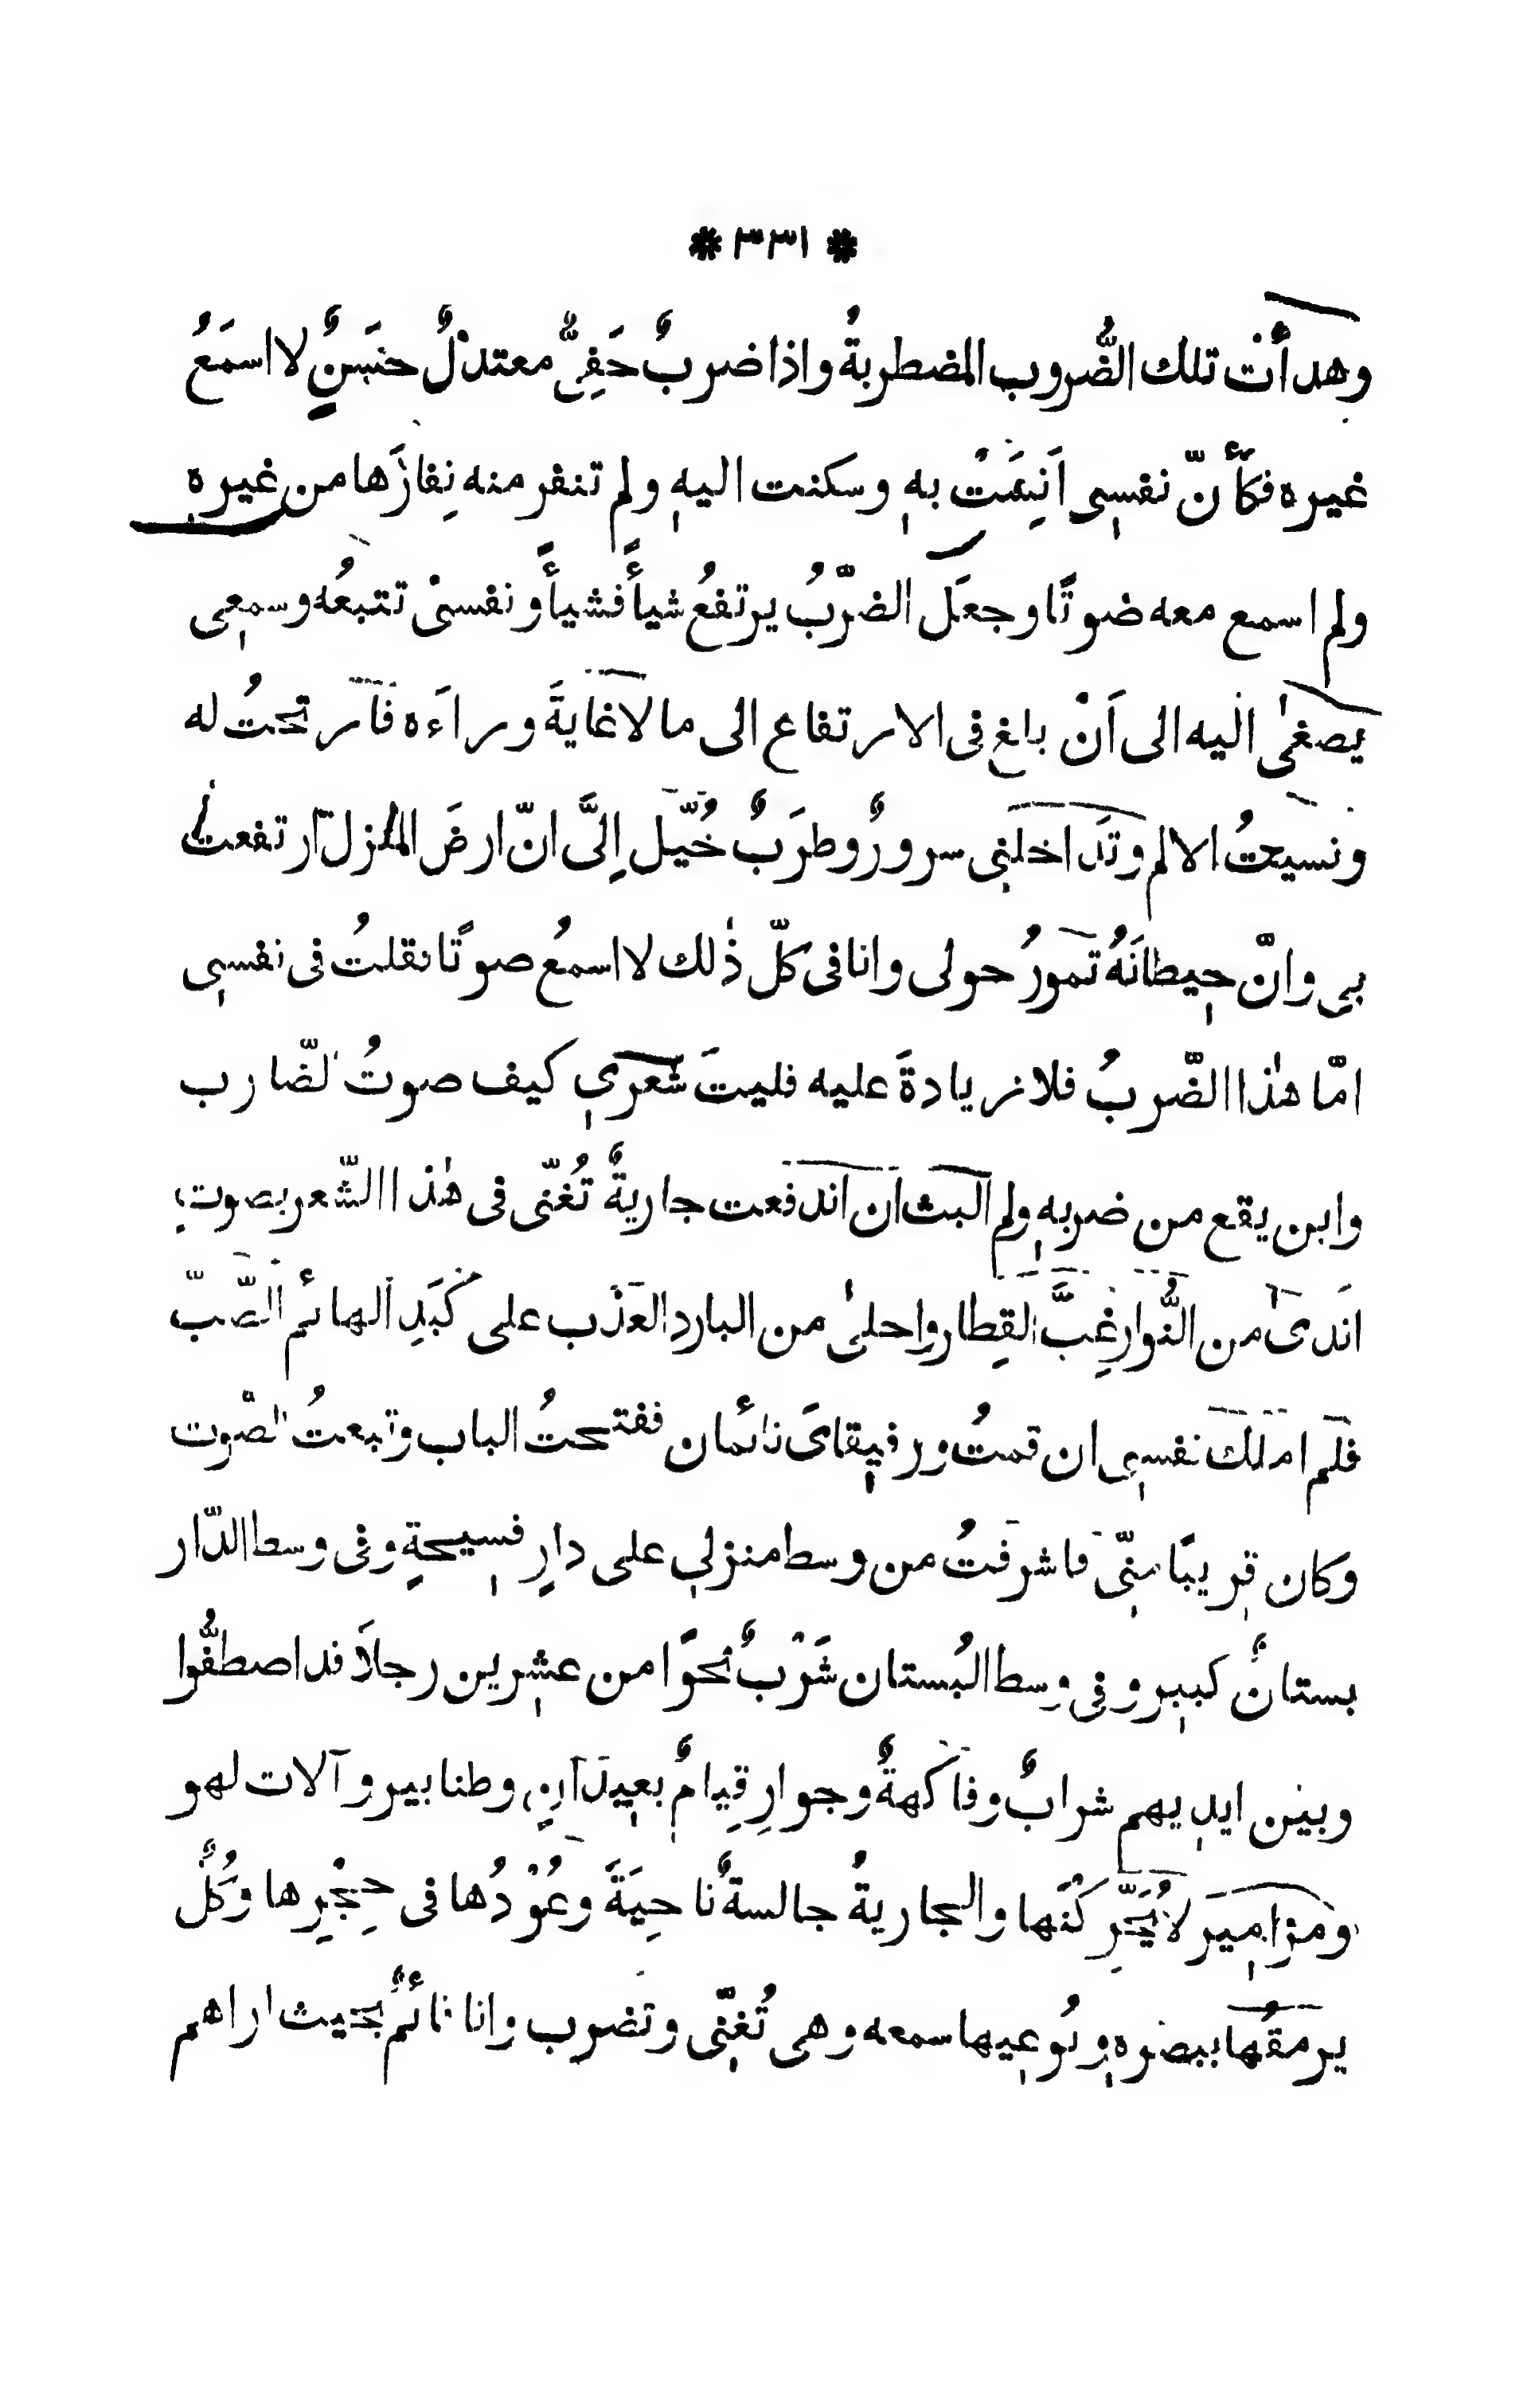 * ٣٣١ *
وهدأَتْ تلك الضُّروب المضطربةُ واذا ضربٌ خَفِىٌّ معتدلٌ حسَنٌ لا اسمَعُ
غيره فكأنّ نفسى اَنِسَتْ بهٖ وسكنت اليهٖ ولم تنفر منه نِفارَها من غيرهٖ
ولم اسمع معه صوتًا وجعَل الضّربُ يرتفعُ شيأً فشيأً ونفسىْ تتبعُه وسمعى
يصغىٰ اليه الى اَنْ بلغ فى الارتفاع الى ما لاغايةَ وراءَه فارتحتُ له
ونسيتُ الالم وتداخلنى سرورٌ وطرَبٌ خُيّل اِلىَّ انّ ارضَ المنزل ارتفعت
بى وانّ حيطانَهُ تَمورُ حولى وانا فى كلّ ذٰلك لا اسمعُ صوتًا فقلتُ فى نفسى
امّا هٰذا الضّربُ فلا زيادةَ عليه فليتَ شعرى كيف صوتُ الضّارب
واين يقع من ضربهٖ ولم البث ان اندفعت جاريةٌ تُغنّى فى هٰذا الشّعر بصوتٍ
اَندىٰ من النُّوار غِبَّ القِطار واحلىٰ من البارد العَذْب على كَبَدِ الهائم الصّبّ
فلم املك نفسى ان قمتُ ورفيقاىَ نائمان ففتحتُ الباب وتبعتُ الصّوت
وكان قريبًا منّى فاشرفتُ من وسط منزلى على دارٍ فسيحةٍ وفى وسط الدّار
بستانٌ كبير وفى وسط البُستان شَرْبٌ نحوًا من عشرين رجلاً قد اصطفُّوا
وبين ايديهم شرابٌ وفاكهةٌ وجوارِ قِيامٌ بعيدانٍ وطنابير وآلات لهو
ومزامير لا يُحَرِّكنَها والجاريةُ جالسةٌ ناحِيَةً وعُوْدُها فى حِجْرِها وكُلٌّ
يرمقُها ببصره ويُوعيها سمعه وهى تُغنّى وتضرب وانا قائمٌ بحيث اراهم